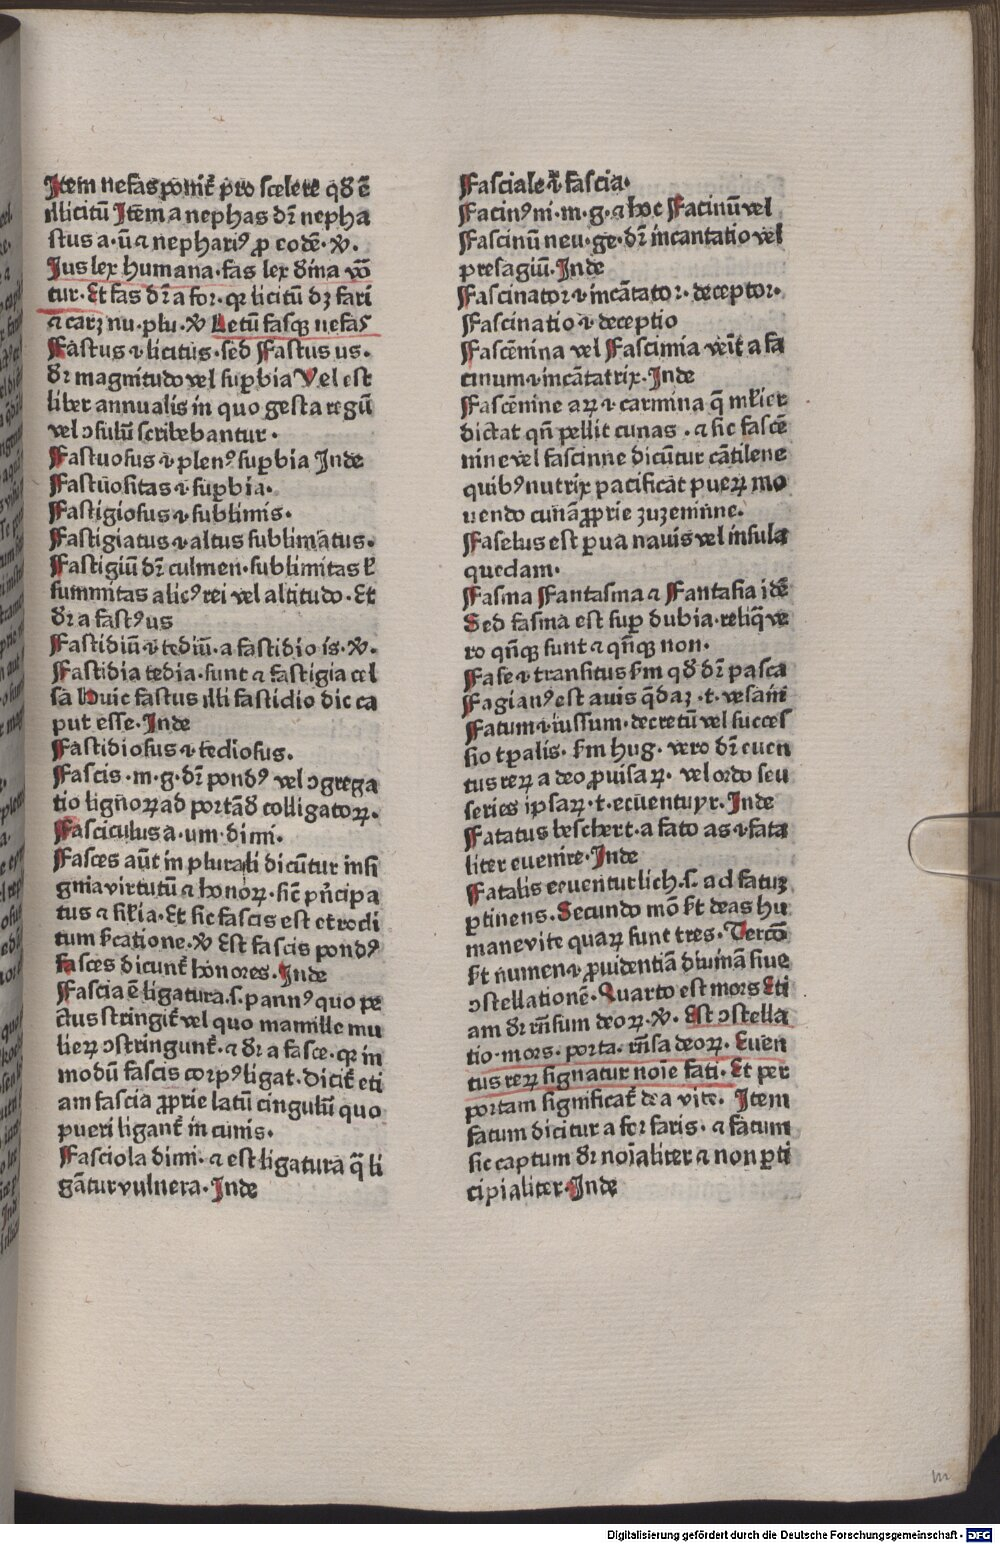 Item nefas ponit᷑ pro scelere qđ ē
illicitū Item a nephas dr̄ nepha
stus a·ū ⁊ nephariꝰ ꝓ eodē·ꝟ·
Ius lex humana·fas lex diīna vō
tur·Et fas dr̄ a for·qꝛ licitū dꝫ fari
⁊ carꝫ nu·plu·ꝟ Letū fasqꝫ nefas
Fastus ·i· licitus·sed Fastus us·
dr̄ magnitudo vel suꝑbia Vel est
liber annualis in quo gesta regū
vel ꝯsulū scribebantur·
Fastuosus ·i· plenꝰ suꝑbia Inde
Fastuositas ·i· suꝑbia·
Fastigiosus ·i· sublimis·
Fastigiatus ·i· altus sublimatus·
Fastigiū dr̄ culmen·sublimitas ł
summitas alicꝰ rei vel altitudo·Et
dr̄ a fastꝰ us
Fastidiū ·i· tediū·a fastidio is·ꝟ·
Fastidia tedia·sunt ⁊ fastigia cel
sa Huic fastus illi fastidio dic ca
put esse·Inde
Fastidiosus ·i· tediosus·
Fascis·m·g·dr̄ pondꝰ vel ꝯgrega
tio lignoꝝ ad portād colligatoꝝ·
Fasciculus a·um·dimi·
Fasces aūt in plurali dicūtur insi
gnia virtutū ⁊ honoꝝ·sic̄ pn̄cipa
tus ⁊ sil̄ia·Et sic fascis est et rodi
tum ł catione·ꝟ Est fascis pondꝰ
fasces dicunt᷑ honores·Inde
Fascia ē ligatura·s·pannꝰ quo pe
ctus stringit᷑ vel quo mamille mu
lieꝝ ꝯstringunt᷑·⁊ dr̄ a fasce·qꝛ in
modū fascis corpꝰ ligat·dicit᷑ eti
am fascia ꝓprie latū cingulū quo
pueri ligant᷑ in cunis·
Fasciola dimi·⁊ est ligatura q̄ li
gātur vulnera·Inde
Fasciale ·i· fascia·
Facinꝰ ni·m·g·⁊ hoc Facinū vel
Fascinū neu·ge·dr̄ incantatio vel
presagiū·Inde
Fascinator ·i· incātator·deceptor·
Fascinatio ·i· deceptio
Fascēnina vel Fascimia veīt a fa
cinum ·i· incātatrix·Inde
Fascēnine aꝝ ·i· carmina q̄ mlier
dictat qn̄ pellit cunas·⁊ sic fascē
nine vel fascinne dicūtur cātilene
quibꝰ nutrix pacificat pueꝝ mo
uendo cunā ꝓprie zuzeninne·
Faselus est ꝑua nauis vel insula
quedam·
Fasma Fantasma ⁊ Fantasia idē
Sed fasma est suꝑ dubia·reliq̄ ve
ro qn̄qꝫ sunt ⁊ qn̄qꝫ non·
Fase ·i· transitus ẜm qđ dr̄ pasca
Fagianꝰ est auis q̄daꝫ·t·vesant
Fatum ·i· iussum·decretū vel succes
sio tꝑalis·ẜm hug·vero dr̄ euen
tus reꝝ a deo ꝓuisaꝝ·vel ordo seu
series ipsaꝝ·t·ecuentuyr·Inde
Fatatus beschert·a fato as ·i· fata
liter euenire·Inde
Fatalis ecuenturlich·s·ad fatuꝫ
ꝑtinens·Secundo mō st deas hu
mane vite quaꝝ sunt tres·Tercō
st numen ·i· ꝓuidentiā diuinā siue
ꝯstellationē·Quarto est mors Eti
am dr̄ rn̄sum deoꝝ·ꝟ·Est ꝯstella
tio·mors·porta·rn̄sa deoꝝ·Euen
tus reꝝ signatur noīe fati·Et per
portam significat᷑ dea vite·Item
fatum dicitur a for faris·⁊ fatum
sic captum dr̄ noīaliter ⁊ non ꝑti
cipialiter·Inde
Digitalisierung gefördert durch die Deutsche Forschungsgemeinschaft - DFG